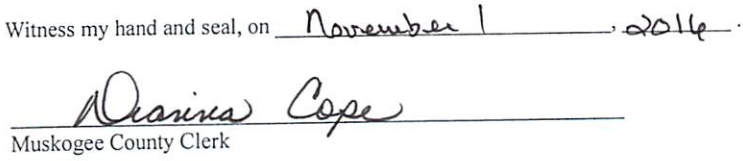 Witness my hand and seal, on November 1, 2016.
Dianna Cope
Muskogee County Clerk